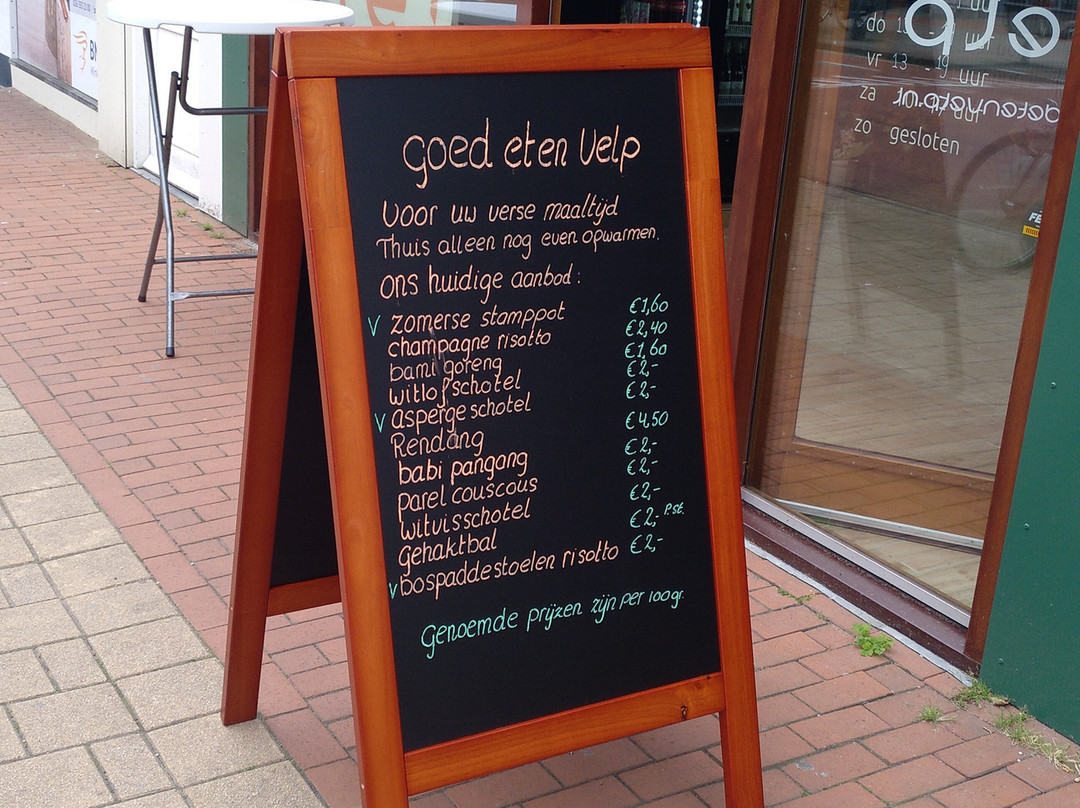 goed eten Velp
Voor uw verse maaltijd
Thuis alleen nog even opwarmen.
ons huidige aanbod:
V zomerse stamppot €1,60
champagne risotto €2,40
bami goreng €1,60
witlofschotel €2,-
V aspergeschotel €2,-
Rendang €4,50
babi pangang €2,-
parel couscous €2,-
witvisschotel €2,-
gehaktbal €2,- P.st.
V bospaddestoelen risotto €2,-
Genoemde prijzen zijn per 100gr.
do
uur
vr 13 - 19 uur
za
uur
zo gesloten